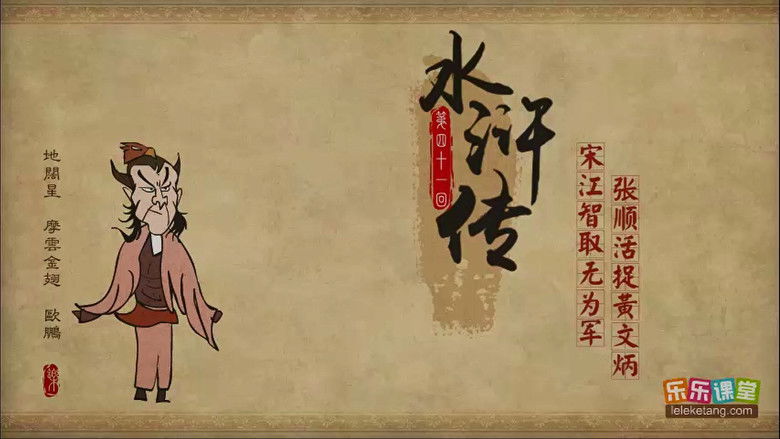 水浒传
第四十一回
宋江智取无为军
张顺活捉黄文炳
地闊星 摩雲金翅 歐鵬
乐乐课堂
leleketang.com